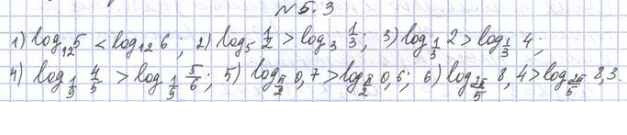 №5.3
1) log₁₂5 < log₁₂6; 2) log₅ 1/2 > log₃ 1/3; 3) log_{1/3} 2 > log_{1/3} 4;
4) log_{1/9} 4/5 > log_{1/9} 5/6; 5) log_{π/2} 0,7 > log_{π/2} 0,6; 6) log_{2π/5} 8,4 > log_{2π/5} 8,3.